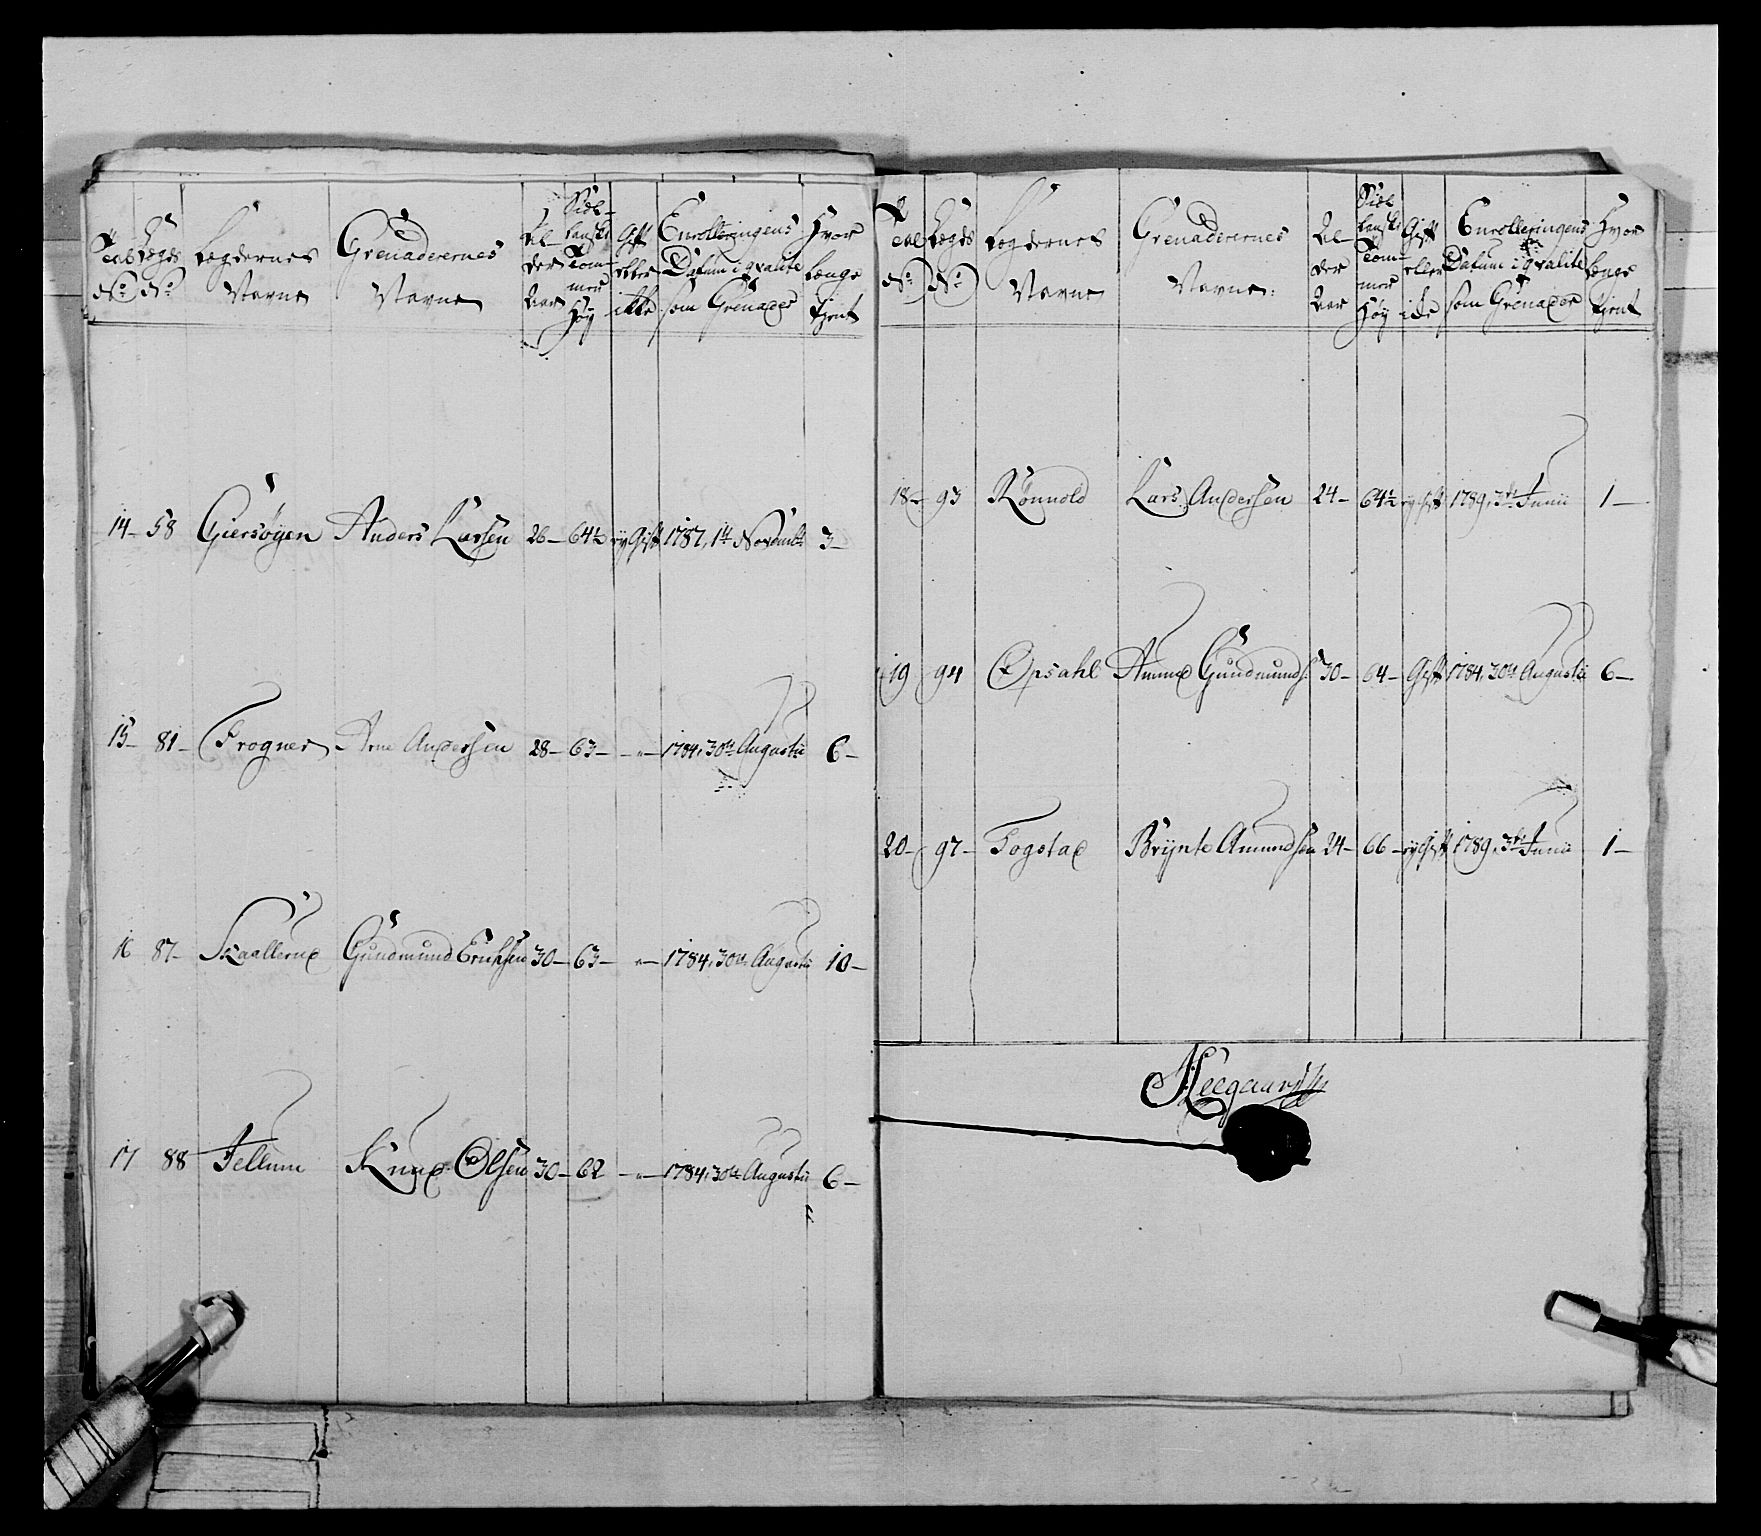 Tal No
Lægds No
Lægdernes Navne
Grenaderernes Navne
Alder Aar
Siællandske Tommer Høy
Gift eller ikke
Enrolleringens Datum i qvalite som Grenader
Hvor længe tient
14 - 58 Giersøyen Anders Larsen 26 - 64½ ey Gift 1787, 1te Novembr 3 -
15 - 81 - Frogner Arne Andersen 28 - 63 - - " - 1784, 30te Augustii 6 -
16 87 - Skaallerud Gudmund Erichsen 30 - 63 - " - 1784, 30te Augustii 10 -
17 88 Tellum Knud Olsen 30 - 62 - " - 1784, 30te Augustii 6 -
Tal No
Lægds No
Lægdernes Navne
Grenaderernes Navne
Alder Aar
Siællandske Tommer Høy
Gift eller
Enrolleringens Datum i qvalite som Grenader
Hvor længe tient
18 - 93 Rönnold Lars Andersen 24 - 64½ ey gift 1789, 3de Junii 1 -
19 94 Opsahl Amund Gudmunds: 30 - 64 - Gift 1784, 30te Augustii 6 -
20 - 97 - Fogstad Brynte Amundsen 24 - 66 - ey Gift 1789, 3de Junii 1 -